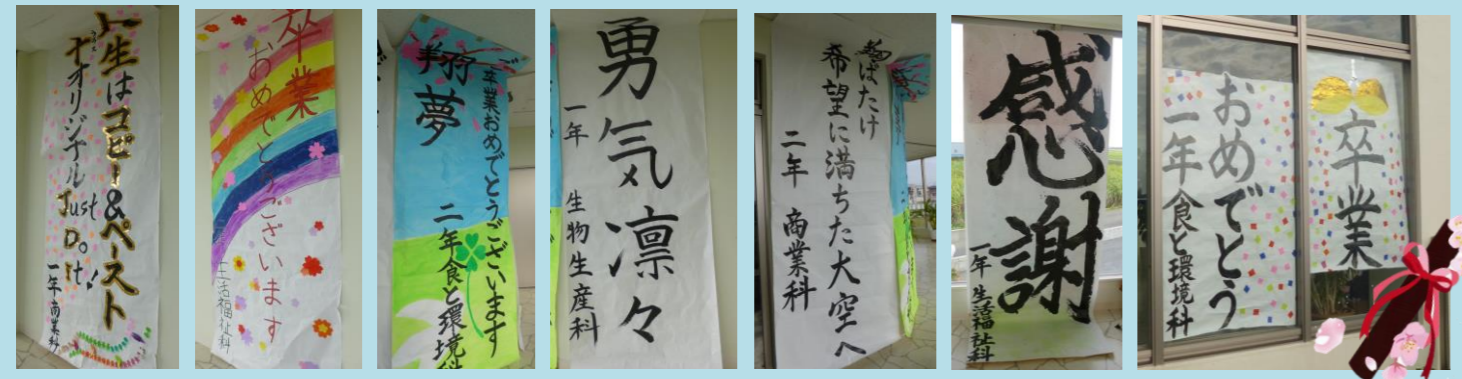 人生はコピー&ペースト
オリジナル
Just
Do
it!
一年 商業科
卒業
おめでとうございます
生活福祉科
翔夢
卒業おめでとうございます
二年 食と環境科
勇気凛々
一年 生物生産科
翔ばたけ
希望に満ちた大空へ
二年 商業科
感謝
一年 生活福祉科
卒業
おめでとう
一年 食と環境科